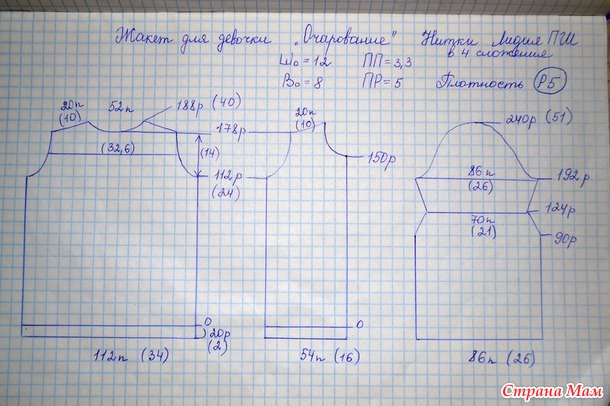 Жакет для девочки „Очарование" Нитки Лидия ПШ
в 4 сложения
Шо = 12 ПП = 3,3
Во = 8 ПР = 5 Плотность P5
20п 52п 188р (40)
(10)
178р
(32,6)
(14)
112р
(24)
0
20р
(2)
112п (34)
20п
(10)
150р
0
54п (16)
240р (51)
86п
(26)
192р
124р
70п
(21)
90р
86п (26)
Страна Мам